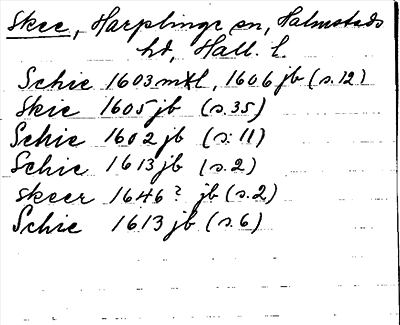 Skee, Harplinge sn, Halmstads
hd, Hall. l.
Schie 1603 mtl, 1606 jb (s. 12)
Skie 1605 jb (s. 35)
Schie 1602 jb (s. 11)
Schie 1613 jb (s. 2)
Skeer 1646? jb (s. 2)
Schie 1613 jb (s. 6)